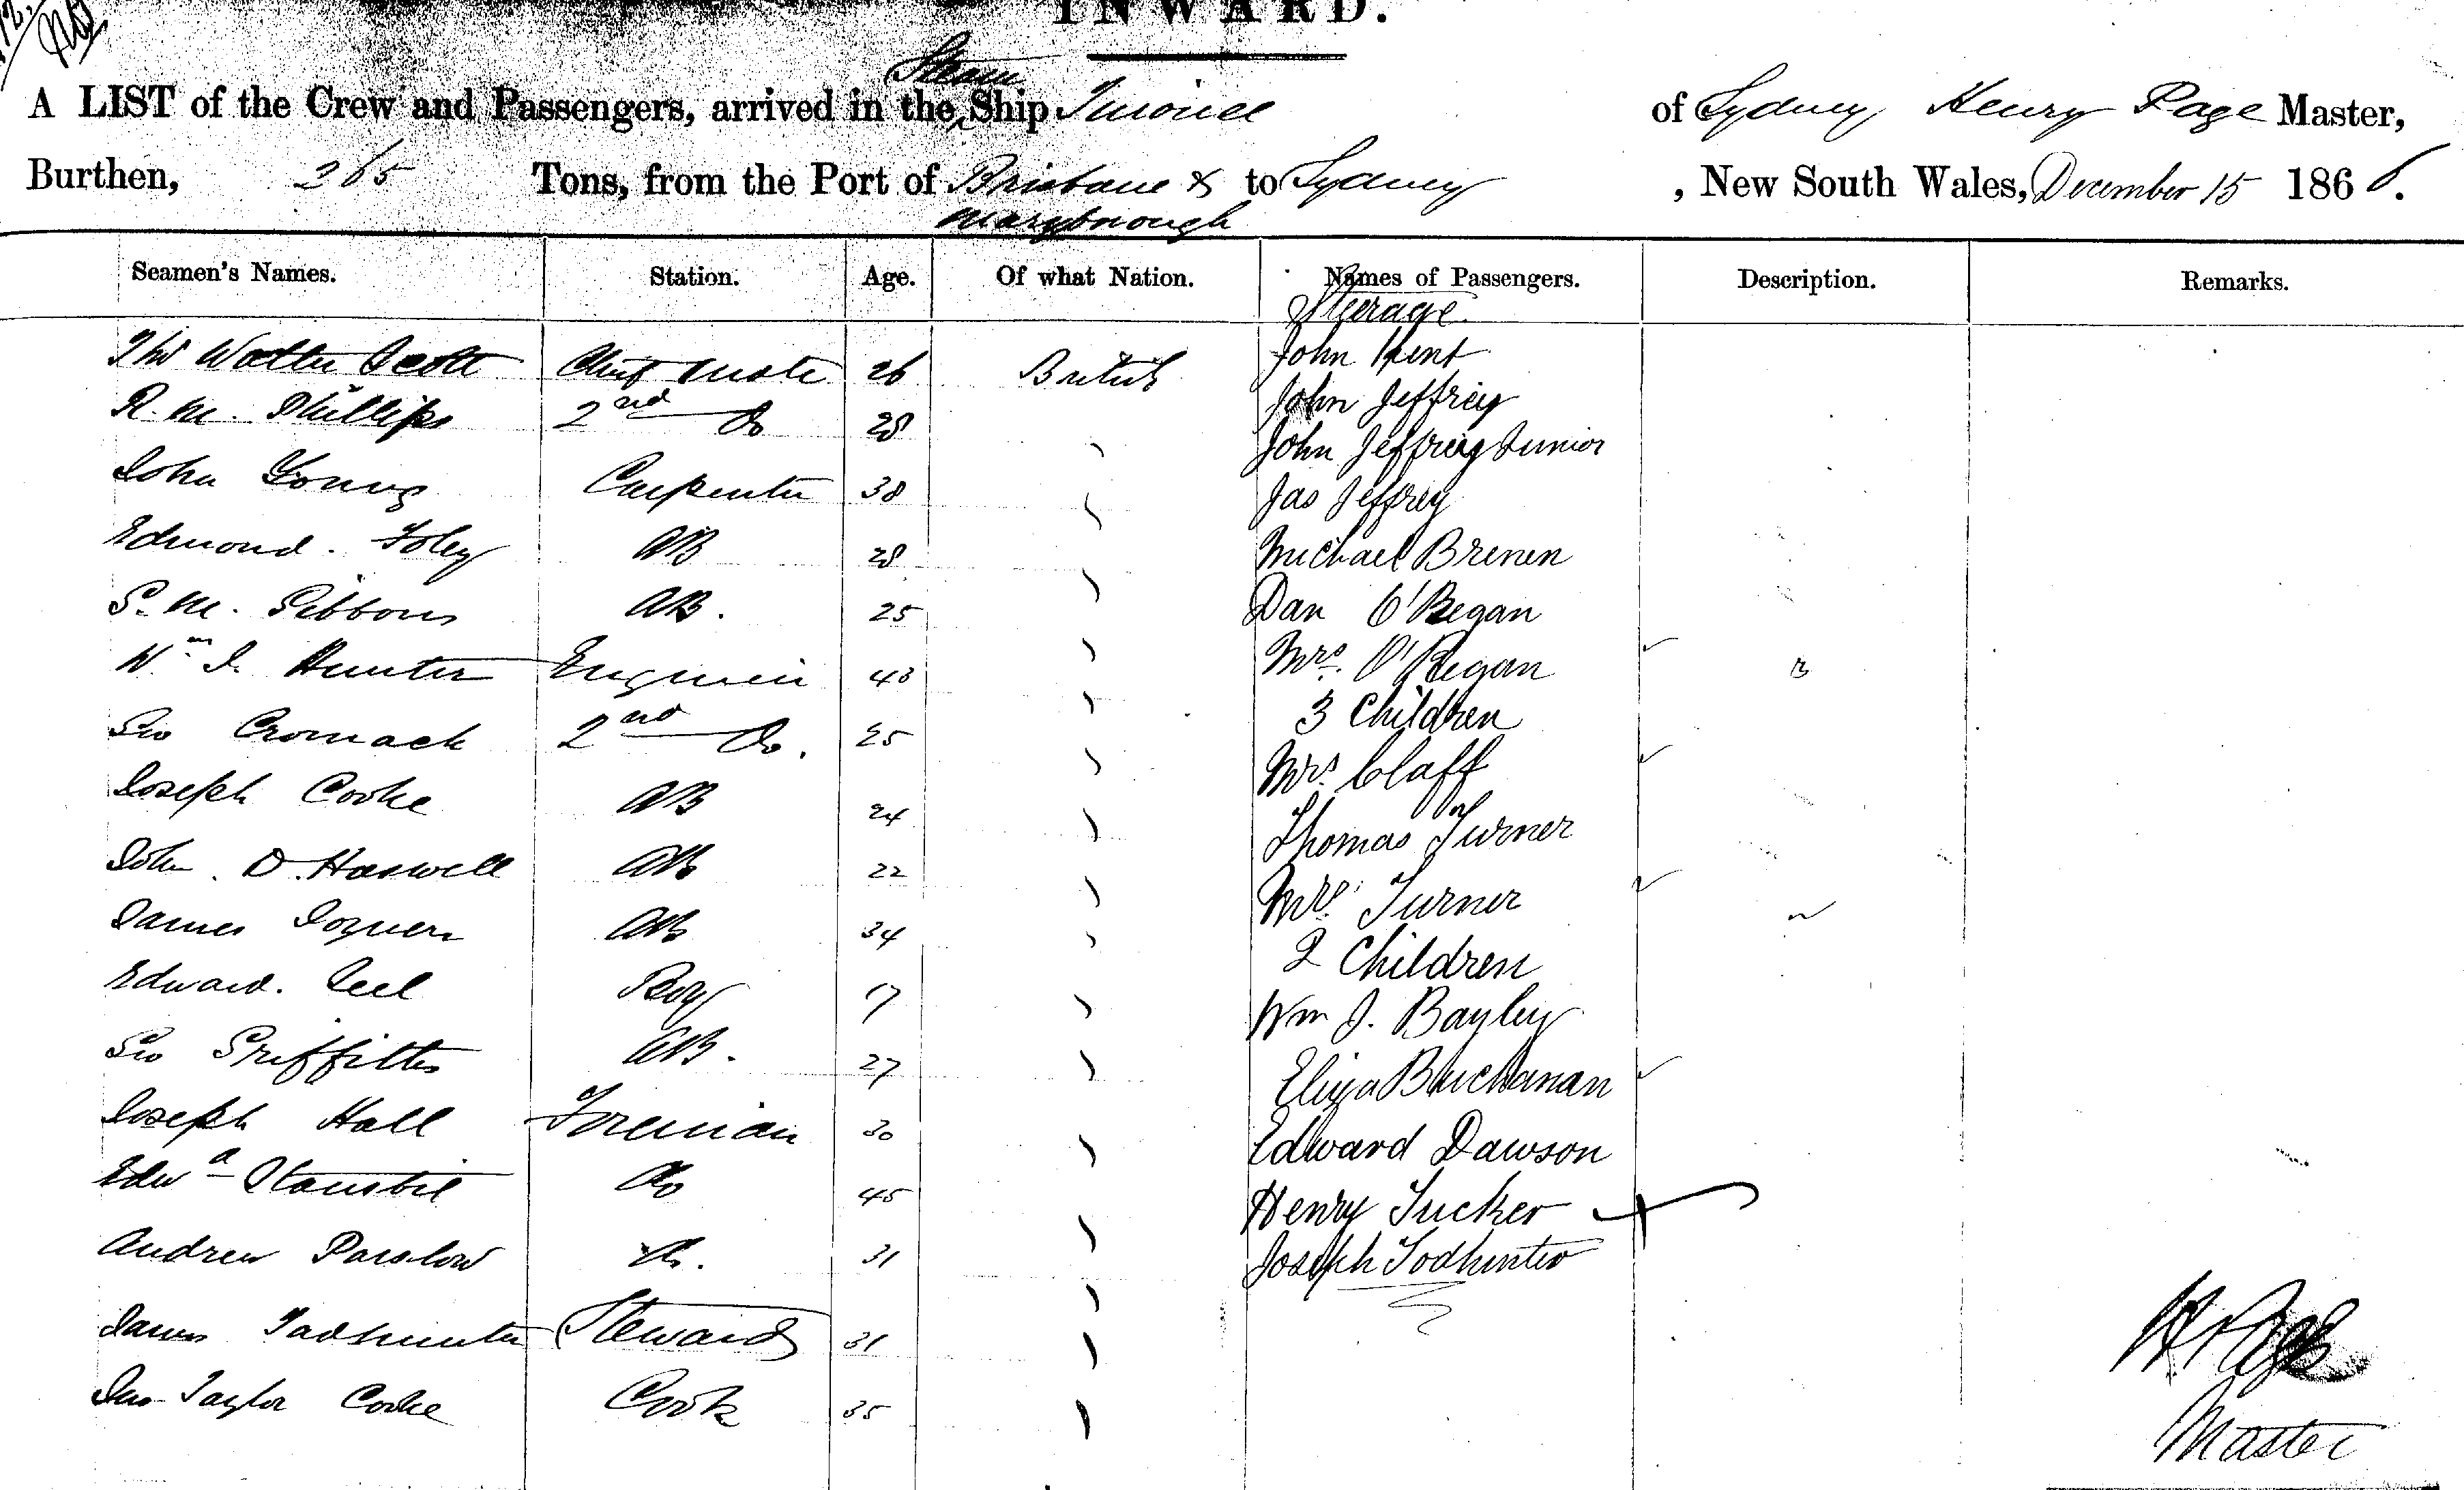 INWARD.
A LIST of the Crew and Passengers, arrived in the Steam Ship of Sydney Henry Page Master,
Burthen, 265 Tons, from the Port of Brisbane & Maryborough to Sydney, New South Wales, December 15 1866.
Seamen's Names. Station. Age. Of what Nation. Names of Passengers. Description. Remarks.
Steerage
Thos Walter Scott Chief Mate 26 British John Kent
R. M. Phillips 2nd Do 28 John Jeffrey
John Jeffrey Junior
John Young Carpenter 38 Jas Jeffrey
Edmond Foley AB 28 Michael Brenen
S. M. Gibbons AB. 25 Dan O'Regan
Wm J. Hunter Engineer 43 Mrs. O'Regan
3 Children
Geo Cromack 2nd Do. 25 Mrs Claff
Joseph Cooke AB 24 Thomas Turner
John D. Haswell AB 22 Mrs. Turner
James AB 34 2 Children
Edward. Peel Boy 17 Wm J. Bayley
Geo Griffiths AB. 27 Eliza Buchanan
Joseph Hall Foreman 30 Edward Dawson
Edwd Do 45 Henry Tucker
Andrew Parslow Do. 31 Joseph Todhunter
James Todhunter Steward 31
Jno Taylor Cooke Cook 35
H Page
Master